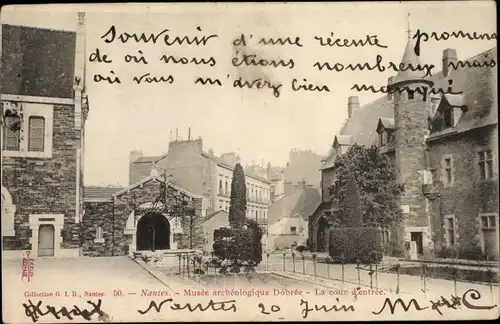 Souvenir d'une récente promena
de où nous étions nombreux mais
où vous m'avez bien manqué
Collection G. I. D., Nantes 50. — Nantes. - Musée archéologique Dobrée - La cour d'entrée.
Nantes 20 Juin